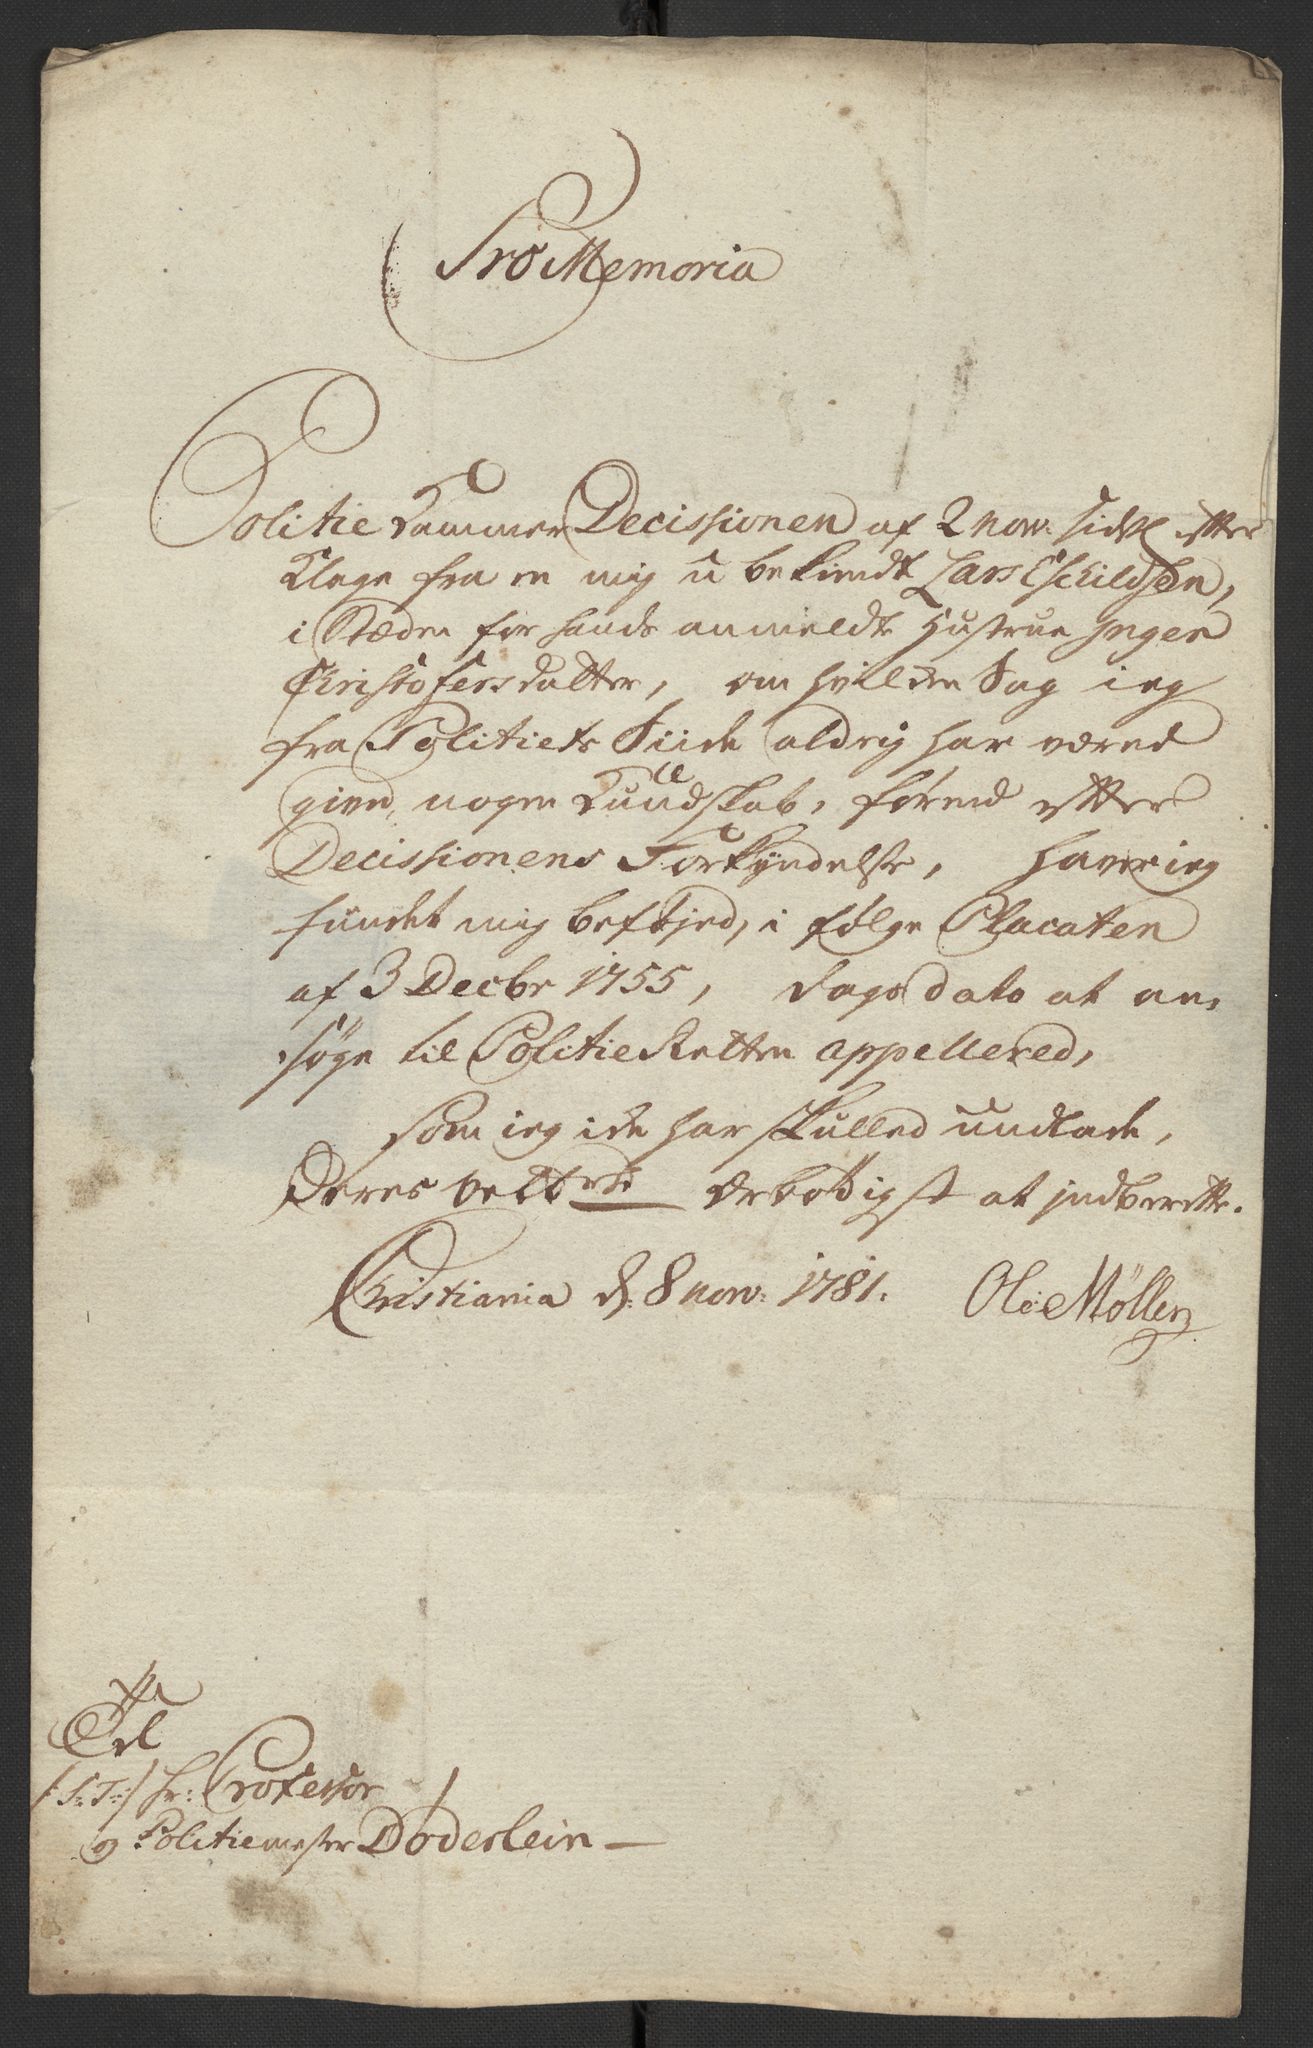 Pro Memoria
Politie Kammer Decissionen af 2 nov: sidstl efter
Klage fra en mig u bekiendt Lars Eschildsen,
i Stæden for hands anmeldte Hustrue Inger
Christofersdatter, om hvilken Sag ieg
fra Politiets Siide aldrig har væred
given nogen Kundskab, førend efter
Decissionens Forkyndelse, haver ieg
fundet mig beføyed, i følge Placaten
af 3 Decbr 1755, dags dato at an,
søge til Politie Retten appellered,
som ieg icke har skulled undlade,
Deres velbrde ærbødigst at indberette.
Christiania d: 8 nov: 1781. Ole Møller
Til
/:S:T:/ Hr: Professor
og Politiemester Døderlein